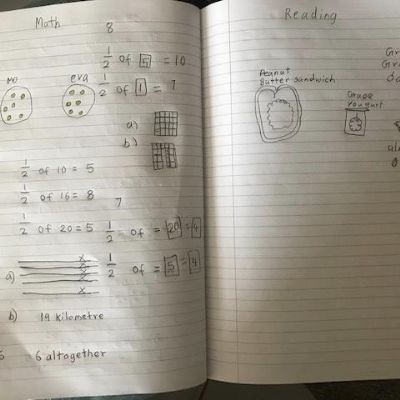 Math
8
1/2 of 5 = 10
Mo
eva
1/2 of 1 = 7
a)
b)
1/2 of 10 = 5
1/2 of 16 = 8
7
1/2 of 20 = 5
1/2 of = 20 = 4
a)
1/2 of = 5 = 4
b) 19 kilometre
6 altogether
Reading
Peanut
Butter sandwich
Grape
Yougurt